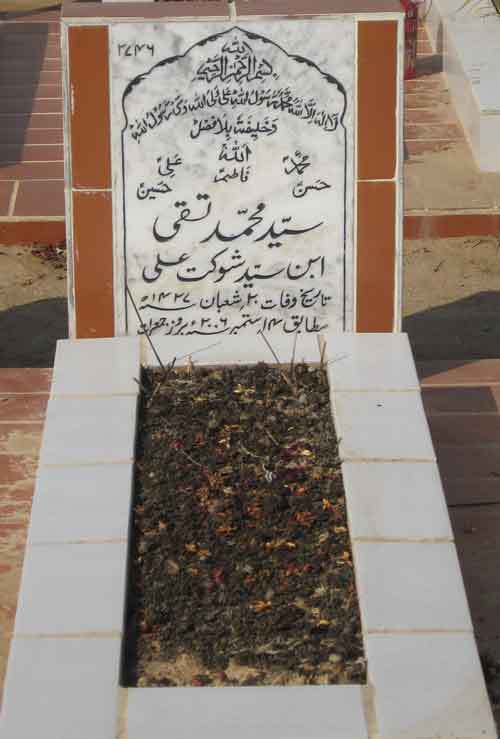 ۲۷۴۶
بسم اللہ الرحمن الرحیم
لا الہ الا اللہ محمد رسول اللہ علی ولی اللہ وصی رسول اللہ
وخلیفتہ بلا فصل
محمد اللہ علی
حسن فاطمہ حسین
سید محمد تقی
ابن سید شوکت علی
تاریخ وفات ۲۰ شعبان ۱۴۲۷ھ
مطابق ۱۴ ستمبر ۲۰۰۶ء بروز جمعرات